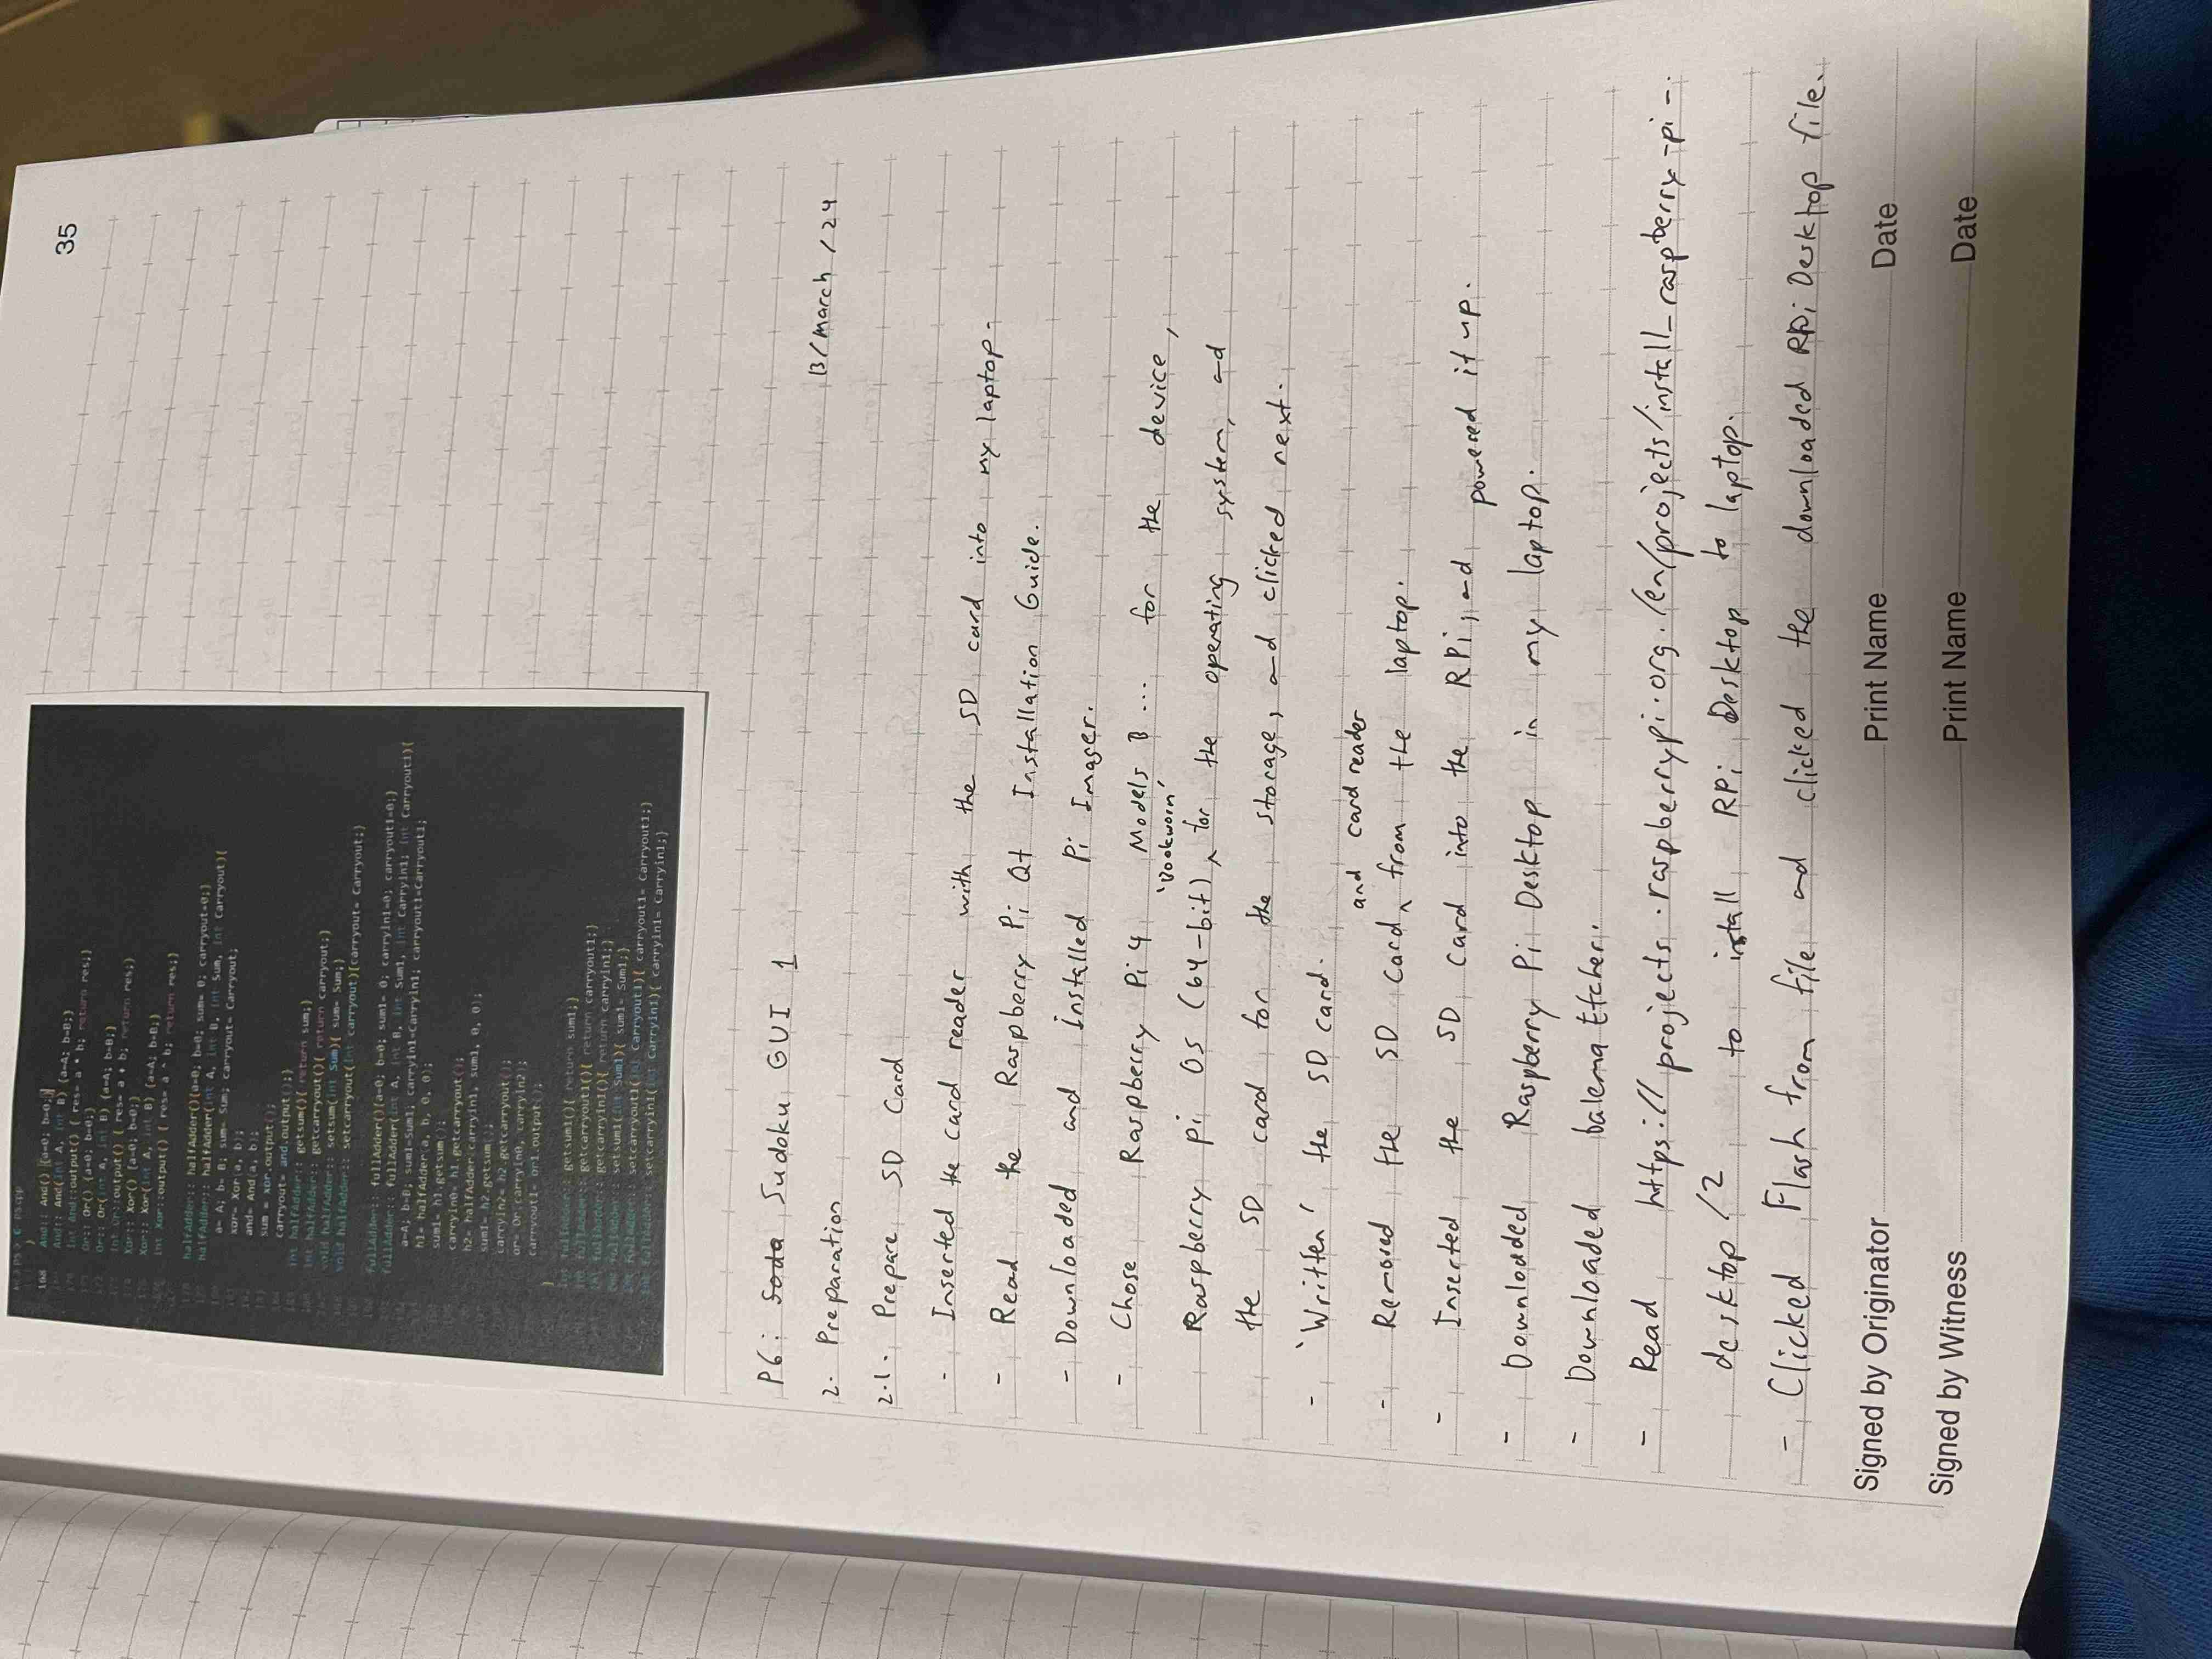 35
P5 > C P5.cpp
}
168 And:: And() {a=0; b=0;}
And:: And(int A, int B) {a=A; b=B;}
int And::output() { res= a * b; return res;}
Or:: Or() {a=0; b=0;}
Or:: Or(int A, int B) {a=A; b=B;}
int Or::output() { res= a + b; return res;}
Xor:: Xor() {a=0; b=0;}
Xor:: Xor(int A, int B) {a=A; b=B;}
int Xor::output() { res= a ^ b; return res;}
halfAdder:: halfAdder(){a=0; b=0; sum= 0; carryout=0;}
halfAdder:: halfAdder(int A, int B, int Sum, int Carryout){
a= A; b= B; sum= Sum; carryout= Carryout;
xor= Xor(a, b);
and= And(a, b);
sum = xor.output();
carryout= and.output();}
int halfAdder:: getsum(){ return sum;}
int halfAdder:: getcarryout(){ return carryout;}
void halfAdder:: setsum(int Sum){ sum= Sum;}
void halfAdder:: setcarryout(int carryout){carryout= Carryout;}
fullAdder:: fullAdder(){a=0; b=0; sum1= 0; carryin1=0; carryout1=0;}
fullAdder:: fullAdder(int A, int B, int Sum1, int Carryin1; int Carryout1){
a=A; b=B; sum1=Sum1; carryin1=Carryin1; carryout1=Carryout1;
h1= halfAdder(a, b, 0, 0);
sum1= h1.getsum();
carryin0= h1.getcarryout();
h2= halfAdder(carryin1, sum1, 0, 0);
sum1= h2.getsum();
carryin2= h2.getcarryout();
or= Or(carryin0, carryin2);
carryout1= or1.output();
}
int fullAdder:: getsum1(){ return sum1;}
int fullAdder:: getcarryout1(){ return carryout1;}
int fullAdder:: getcarryin1(){ return carryin1;}
int fullAdder:: setsum1(int Sum1){ sum1= Sum1;}
int fullAdder:: setcarryout1(int Carryout1){ carryout1= Carryout1;}
int fullAdder:: setcarryin1(int Carryin1){ carryin1= Carryin1;}
P6: Soda Sudoku GUI 1
13/March/24
2. Preparation
2.1. Prepare SD Card
- Inserted the card reader with the SD card into my laptop.
- Read the Raspberry Pi Qt Installation Guide.
- Downloaded and installed Pi Imager.
- Chose Raspberry Pi 4 Models B ... for the device,
Raspberry pi OS (64-bit) 'Bookworn' for the operating system, and
the SD card for the storage, and clicked next.
- 'Written' the SD card.
- Removed the SD card and card reader from the laptop.
- Inserted the SD card into the RPi, and powered it up.
- Downloaded Raspberry Pi Desktop in my laptop.
- Downloaded balema Etcher.
- Read https://projects.raspberrypi.org./en/projects/install_raspberry-pi-
desktop/2 to install RPi Desktop to laptop.
- Clicked Flash from file and clicked the downloaded RPi Desktop file.
Signed by Originator Print Name Date
Signed by Witness Print Name Date